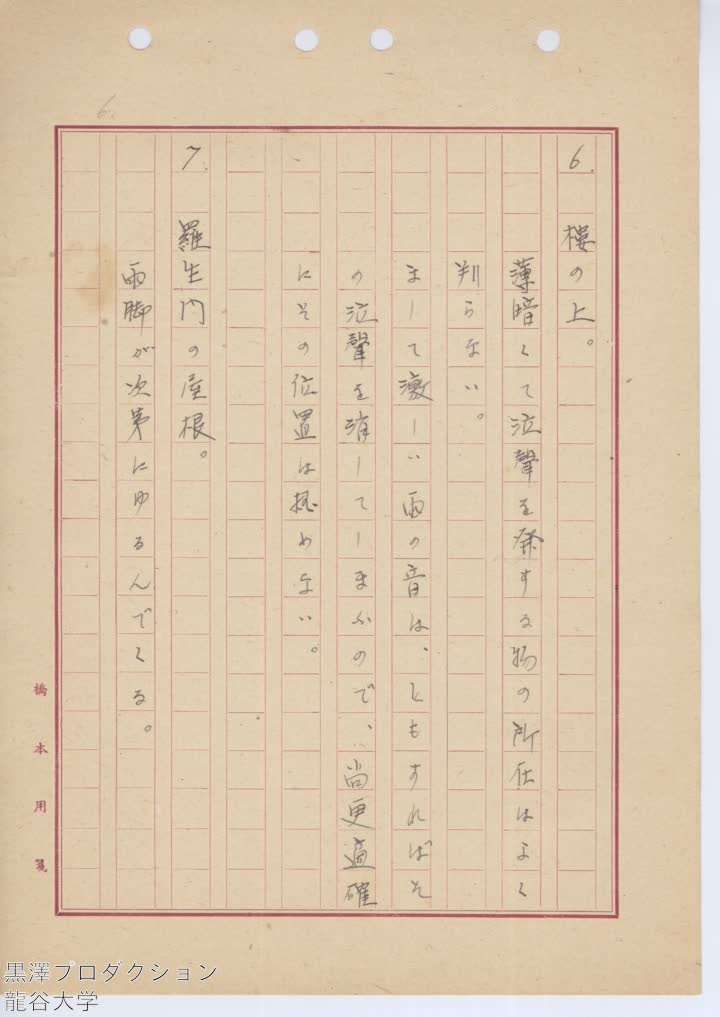 6.
6. 樓の上。
薄暗くて泣聲を発する物の所在はよく
判らない。
まして激しい雨の音は、ともすればそ
の泣聲を消してしまふので、尚更適確
にその位置は掴めない。
7. 羅生門の屋根。
雨脚が次第にゆるんでくる。
橋本用箋
黒澤プロダクション
龍谷大学